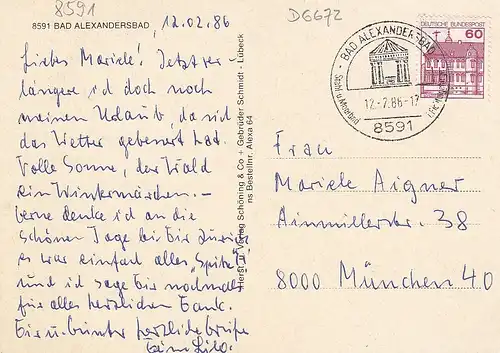 8591
8591 BAD ALEXANDERSBAD
12.02.86
D6672
Liebes Mariele! Jetzt ver-
längere ich doch noch
meinen Urlaub, da sich
das Wetter gebessert hat.
Volle Sonne, der Wald
ein Wintermärchen. –
Gerne denke ich an die
schönen Tage bei Dir zurück
es war einfach alles „Spitze"
und ich sage Dir nochmals
für alles herzlichen Dank.
Dir u. Günter herzliche Grüße
Deine Lilo.
Herst. u. Verlag Schöning & Co + Gebrüder Schmidt - Lübeck
Bestellnr. Alexa 64
BAD ALEXANDERSBAD
12.-2.86-17
8591
DEUTSCHE BUNDESPOST
60
Frau
Mariele Aigner
Ainmillerstr. 38
8000 München 40